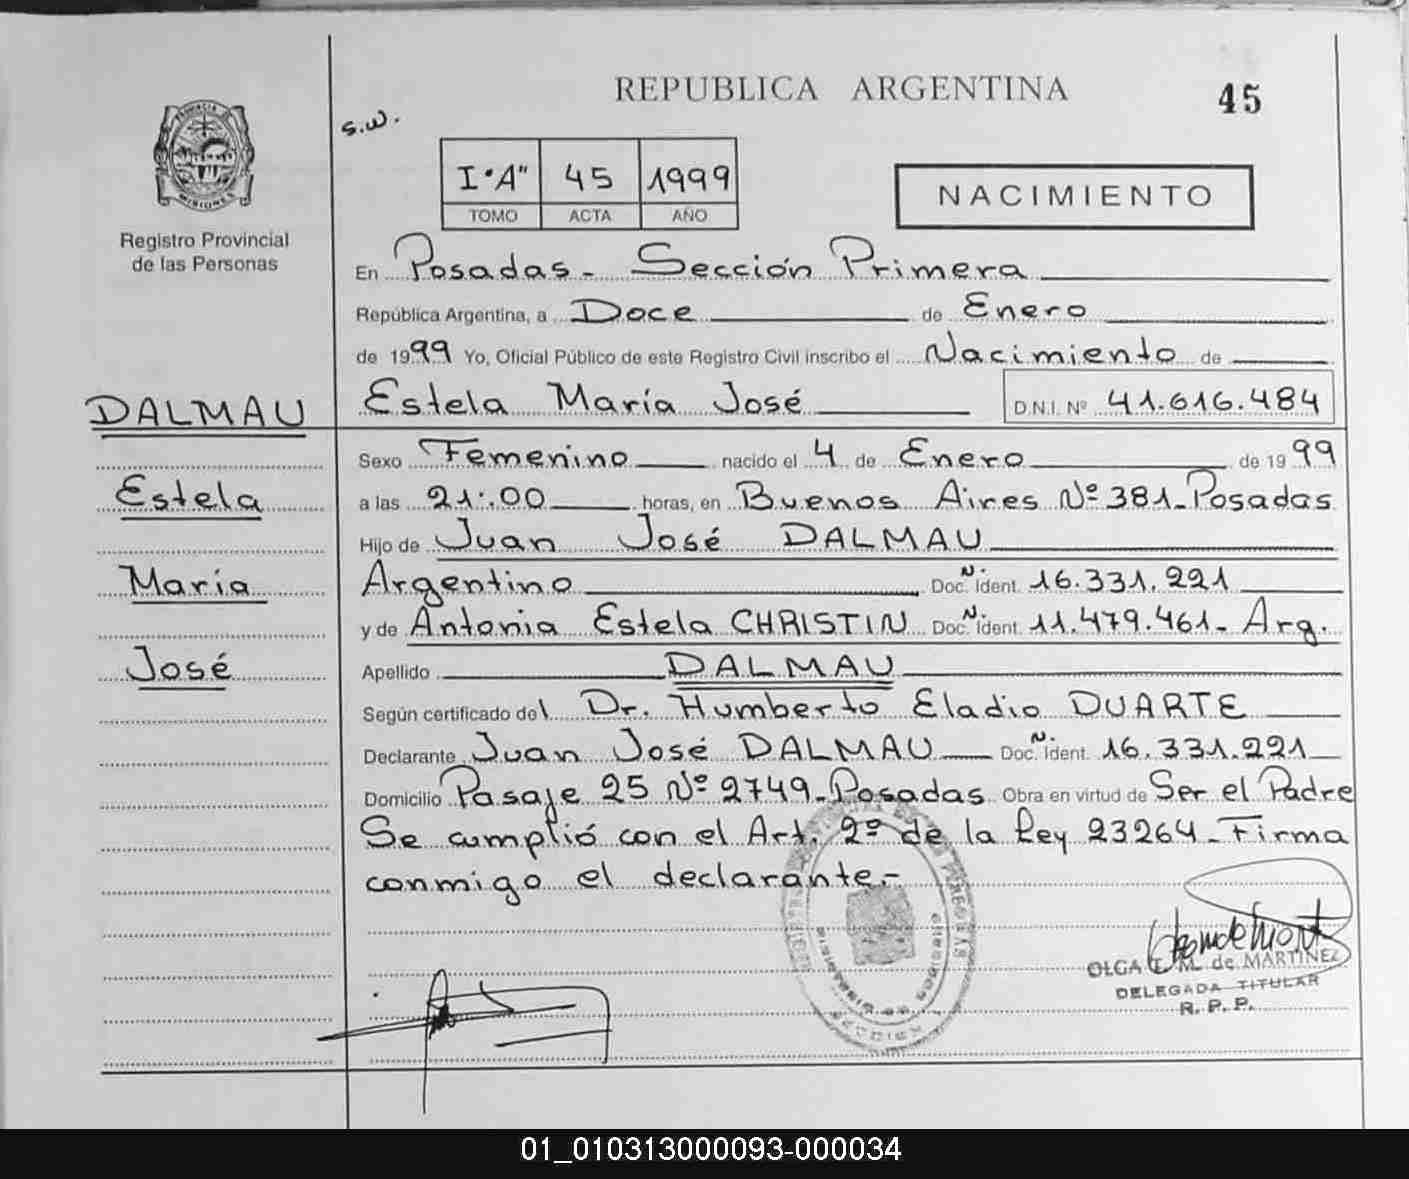 REPUBLICA ARGENTINA
45
s.w.
PROVINCIA
MISIONES
Registro Provincial
de las Personas
I "A" 45 1999
TOMO ACTA AÑO
NACIMIENTO
En Posadas - Sección Primera
República Argentina, a Doce de Enero
de 1999 Yo, Oficial Público de este Registro Civil inscribo el Nacimiento de
Estela María José D.N.I. Nº 41.616.484
DALMAU
Estela
María
José
Sexo Femenino nacido el 4 de Enero de 1999
a las 21:00 horas, en Buenos Aires Nº 381 - Posadas
Hijo de Juan José DALMAU
Argentino Doc. N. Ident. 16.331.221
y de Antonia Estela CHRISTIN Doc. N. Ident. 11.479.461 - Arg.
Apellido DALMAU
Según certificado del Dr. Humberto Eladio DUARTE
Declarante Juan José DALMAU Doc. N. Ident. 16.331.221
Domicilio Pasaje 25 Nº 2749 - Posadas Obra en virtud de Ser el Padre
Se cumplió con el Art. 2º de la Ley 23264 - Firma
conmigo el declarante.-
OLGA E. M. de MARTINEZ
DELEGADA TITULAR
R. P. P.
01_010313000093-000034